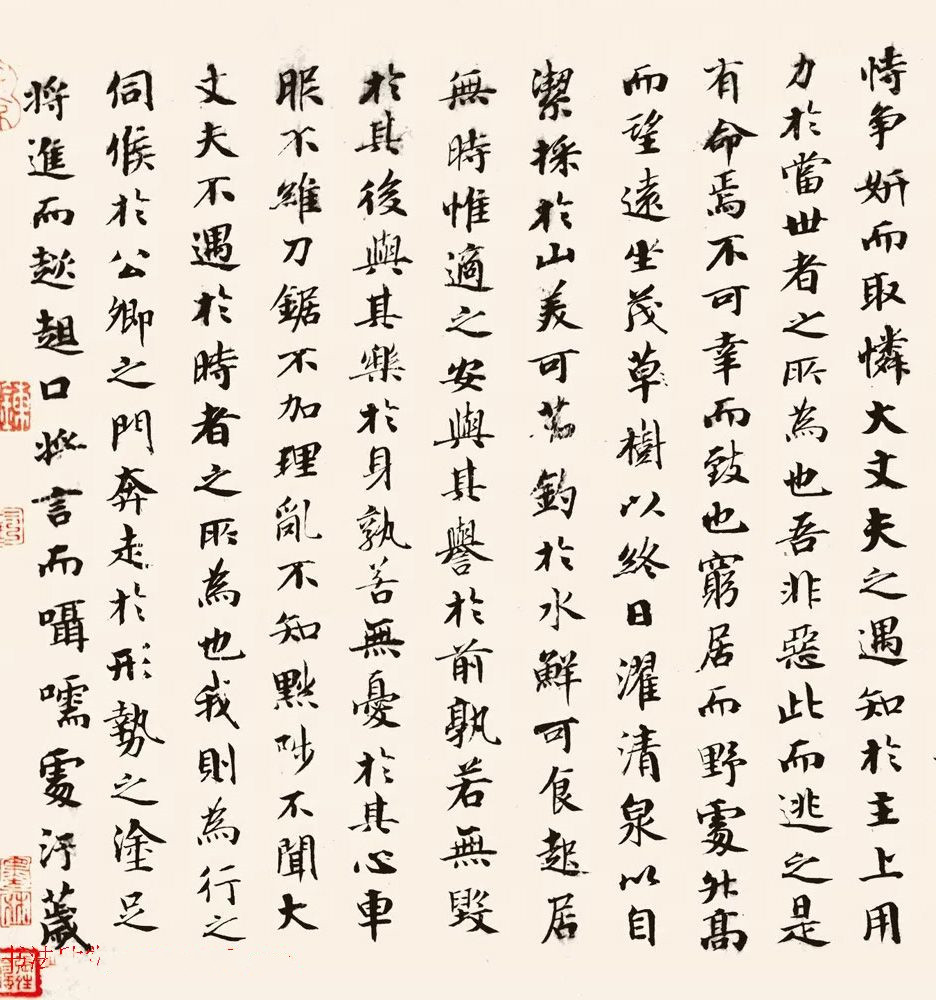 恃争妍而取憐大丈夫之遇知於主上用
力於當世者之所為也吾非惡此而逃之是
有命焉不可幸而致也窮居而野處升高
而望遠坐茂草樹以終日濯清泉以自
潔採於山美可茹釣於水鮮可食起居
無時惟適之安與其譽於前孰若無毀
於其後與其樂於身孰若無憂於其心車
服不維刀鋸不加理亂不知黜陟不聞大
丈夫不遇於時者之所為也我則為行之
伺候於公卿之門奔走於形勢之塗足
将進而趑趄口将言而囁嚅處汙薉